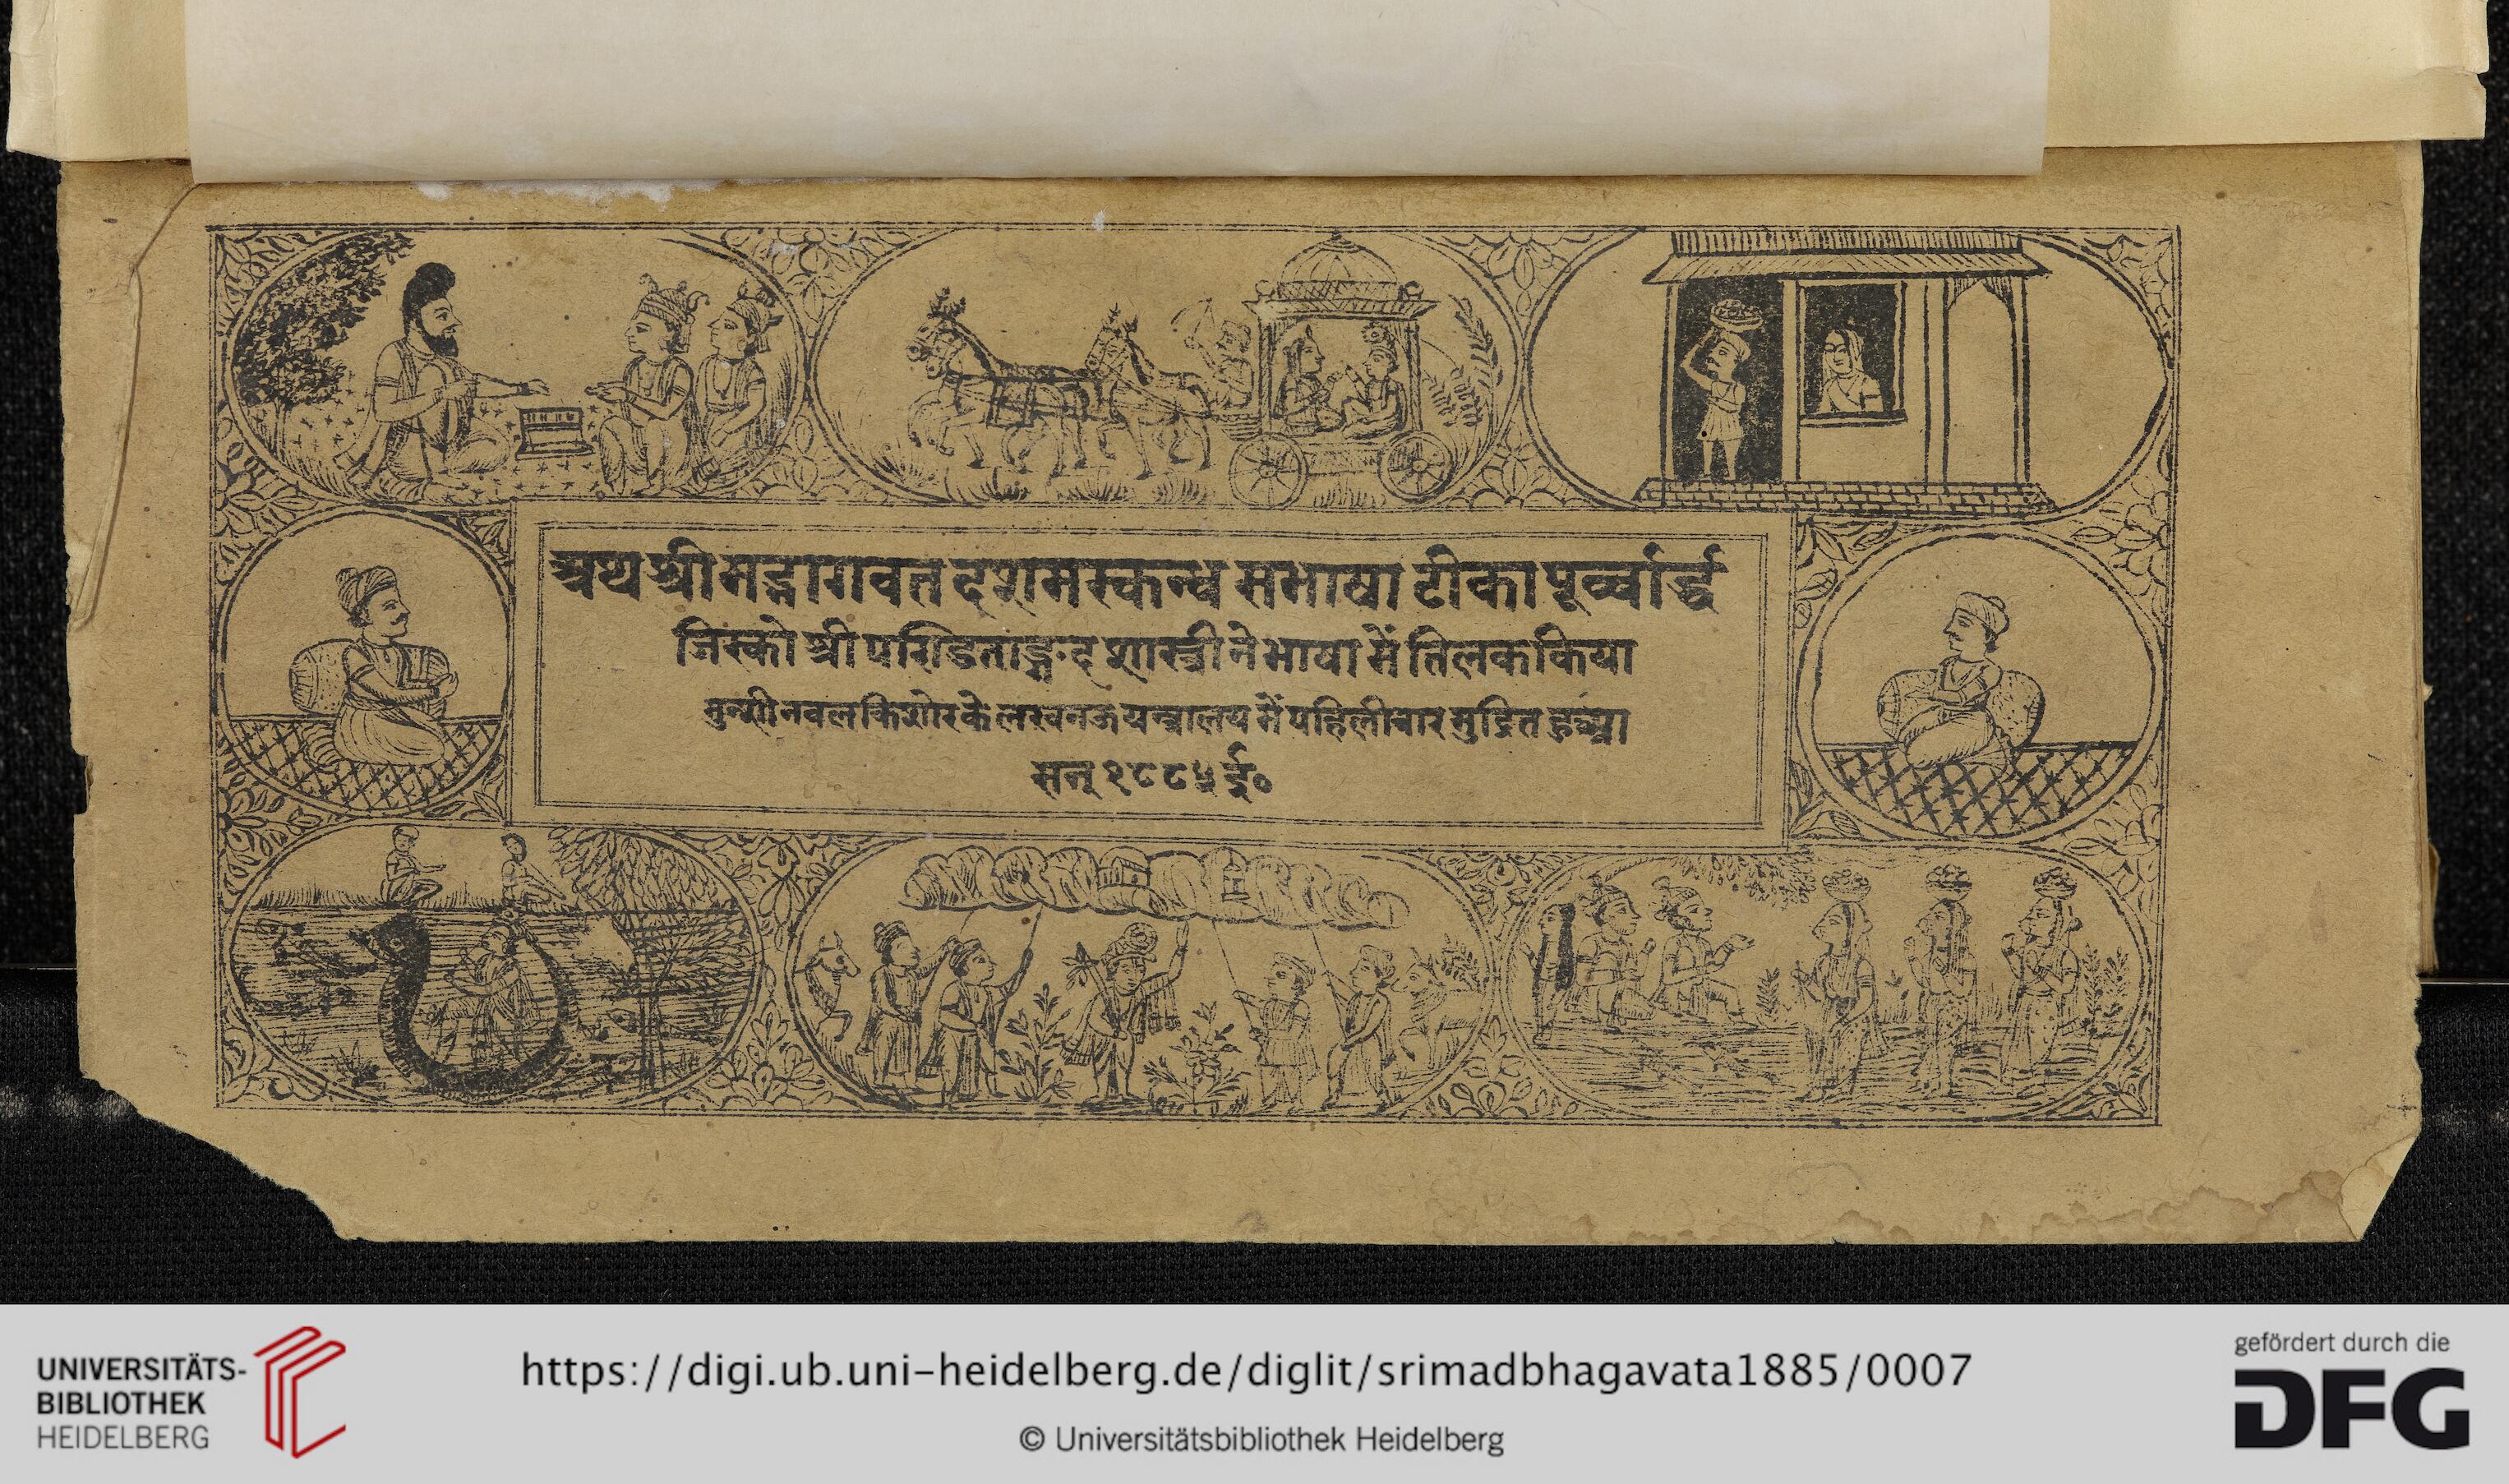 अथ श्रीमद्भागवत दशमस्कन्ध सभाषा टीका पूर्व्वार्द्ध
जिस्को श्री पण्डिताङ्गद शास्त्री ने भाषा में तिलक किया
मुन्शी नवलकिशोर के लखनऊ यन्त्रालय में पहिली बार मुद्रित हुआ
सन् १८८५ ई०
gefördert durch die
UNIVERSITÄTS-
BIBLIOTHEK
HEIDELBERG
https://digi.ub.uni-heidelberg.de/diglit/srimadbhagavata1885/0007
DFG
© Universitätsbibliothek Heidelberg